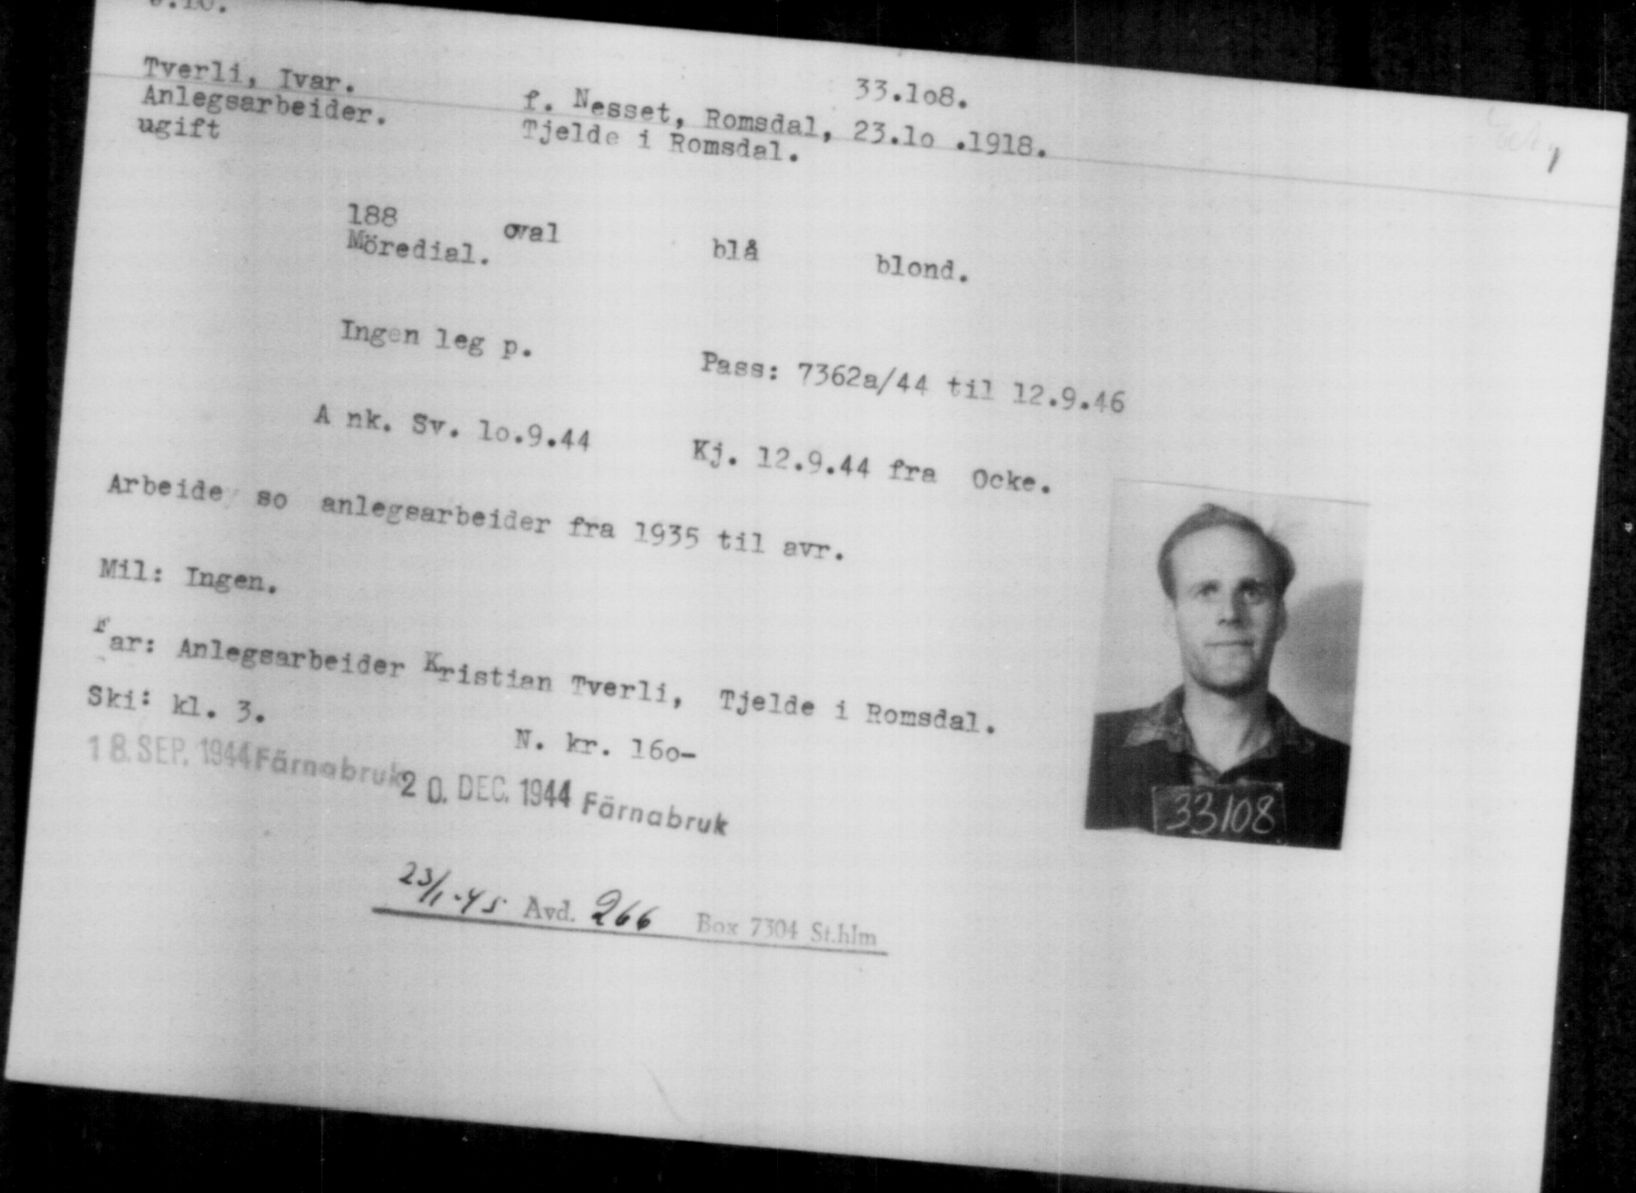 33.lo8.
Tverli, Ivar.
f. Nesset, Romsdal, 23.lo .1918.
Anlegsarbeider.
Tjelde i Romsdal.
ugift
188 oval blå blond.
Möredial.
Ingen leg p.
Pass: 7362a/44 til 12.9.46
A nk. Sv. lo.9.44
Kj. 12.9.44 fra Ocke.
Arbeide so anlegsarbeider fra 1935 til avr.
Mil: Ingen.
Far: Anlegsarbeider Kristian Tverli, Tjelde i Romsdal.
Ski: kl. 3.
N. kr. 16o-
18. SEP. 1944 Färnabruk
20. DEC. 1944 Färnabruk
23/1-45 Avd. 266 Box 7304 St.hlm
33108